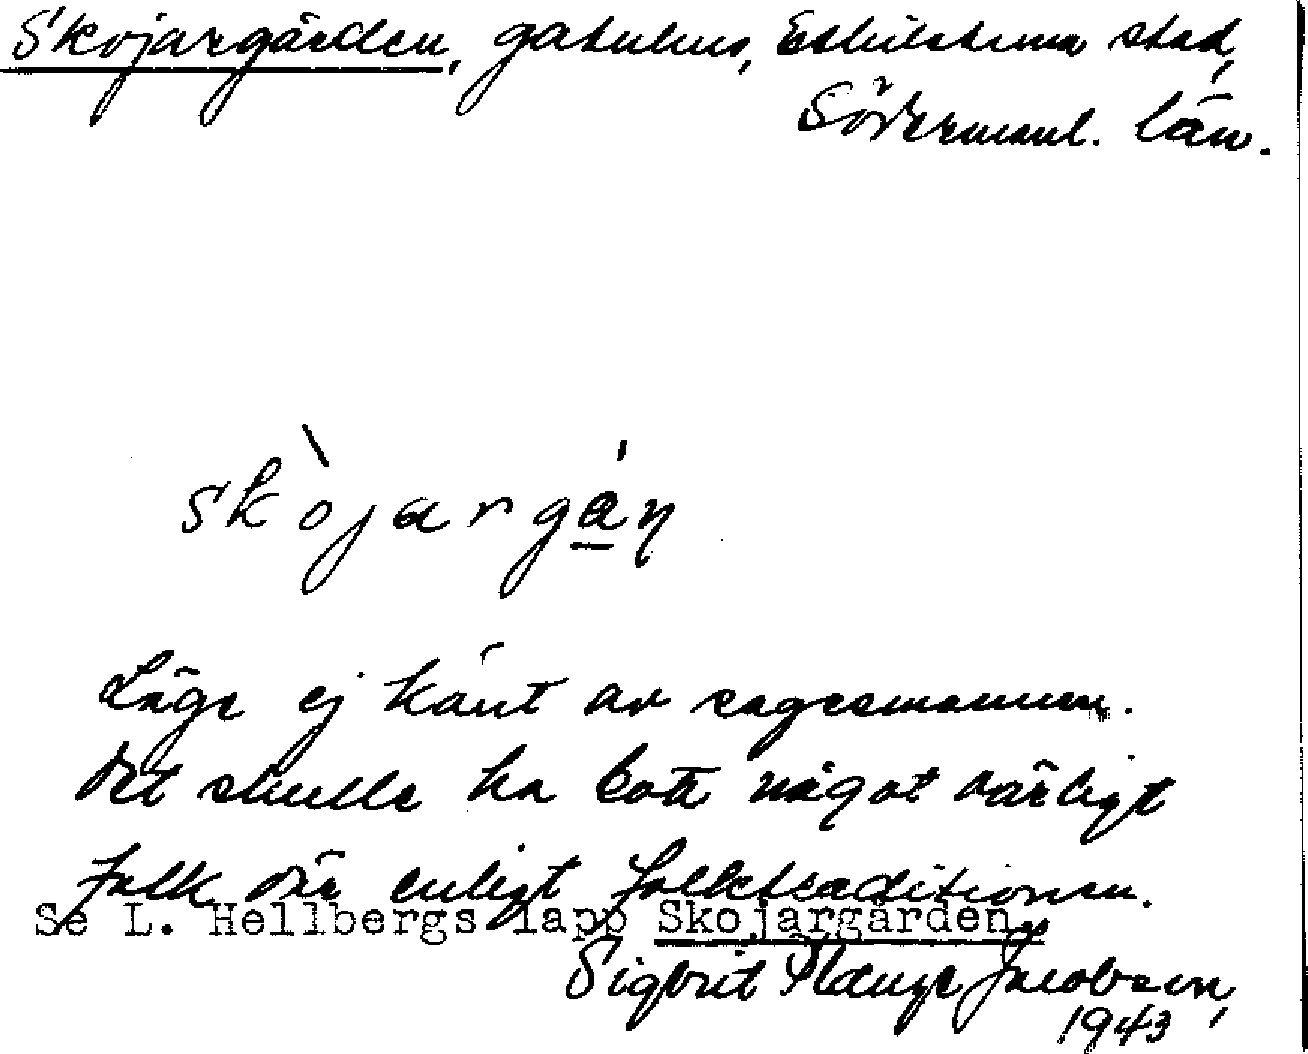 Skojargården, gatuhus, Eskilstuna stad,
Södermanl. län.
skòjargán
Läge ej känt av sagesmannen.
Det skulle ha bott något dåligt
folk där enligt folktraditionen.
Se L. Hellbergs lapp Skojargården.
Sigbrit Plænge Jacobson,
1943